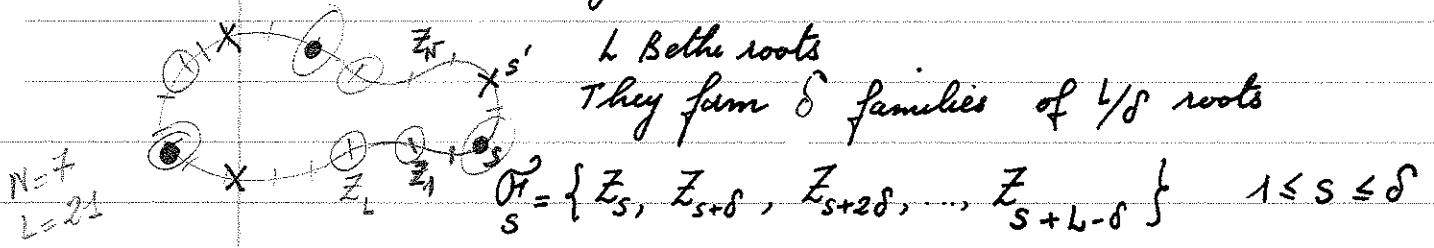 Z_N s' L Bethe roots
They form δ families of L/δ roots
N=7 Z_L Z_1 s F_s = { Z_s, Z_{s+δ}, Z_{s+2δ}, ..., Z_{s+L-δ} } 1 ≤ s ≤ δ
L=21